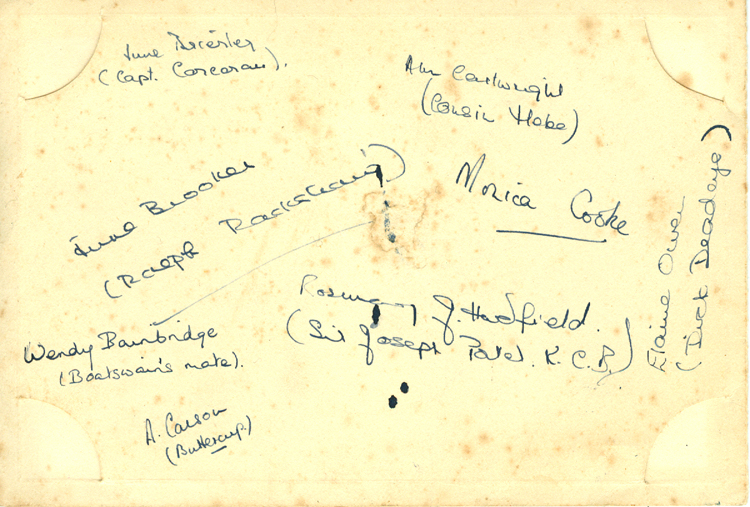 June Brierley
(Capt. Corcoran).
Ann Cartwright
(Cousin Hebe)
June Brooker
(Ralph Rackstraw)
Monica Cooke
Elaine Owen
(Dick Deadeye)
Rosemary J. Hadfield.
(Sir Joseph Porter. K.C.B.)
Wendy Bainbridge
(Boatswain's mate).
A. Carson
(Buttercup.)